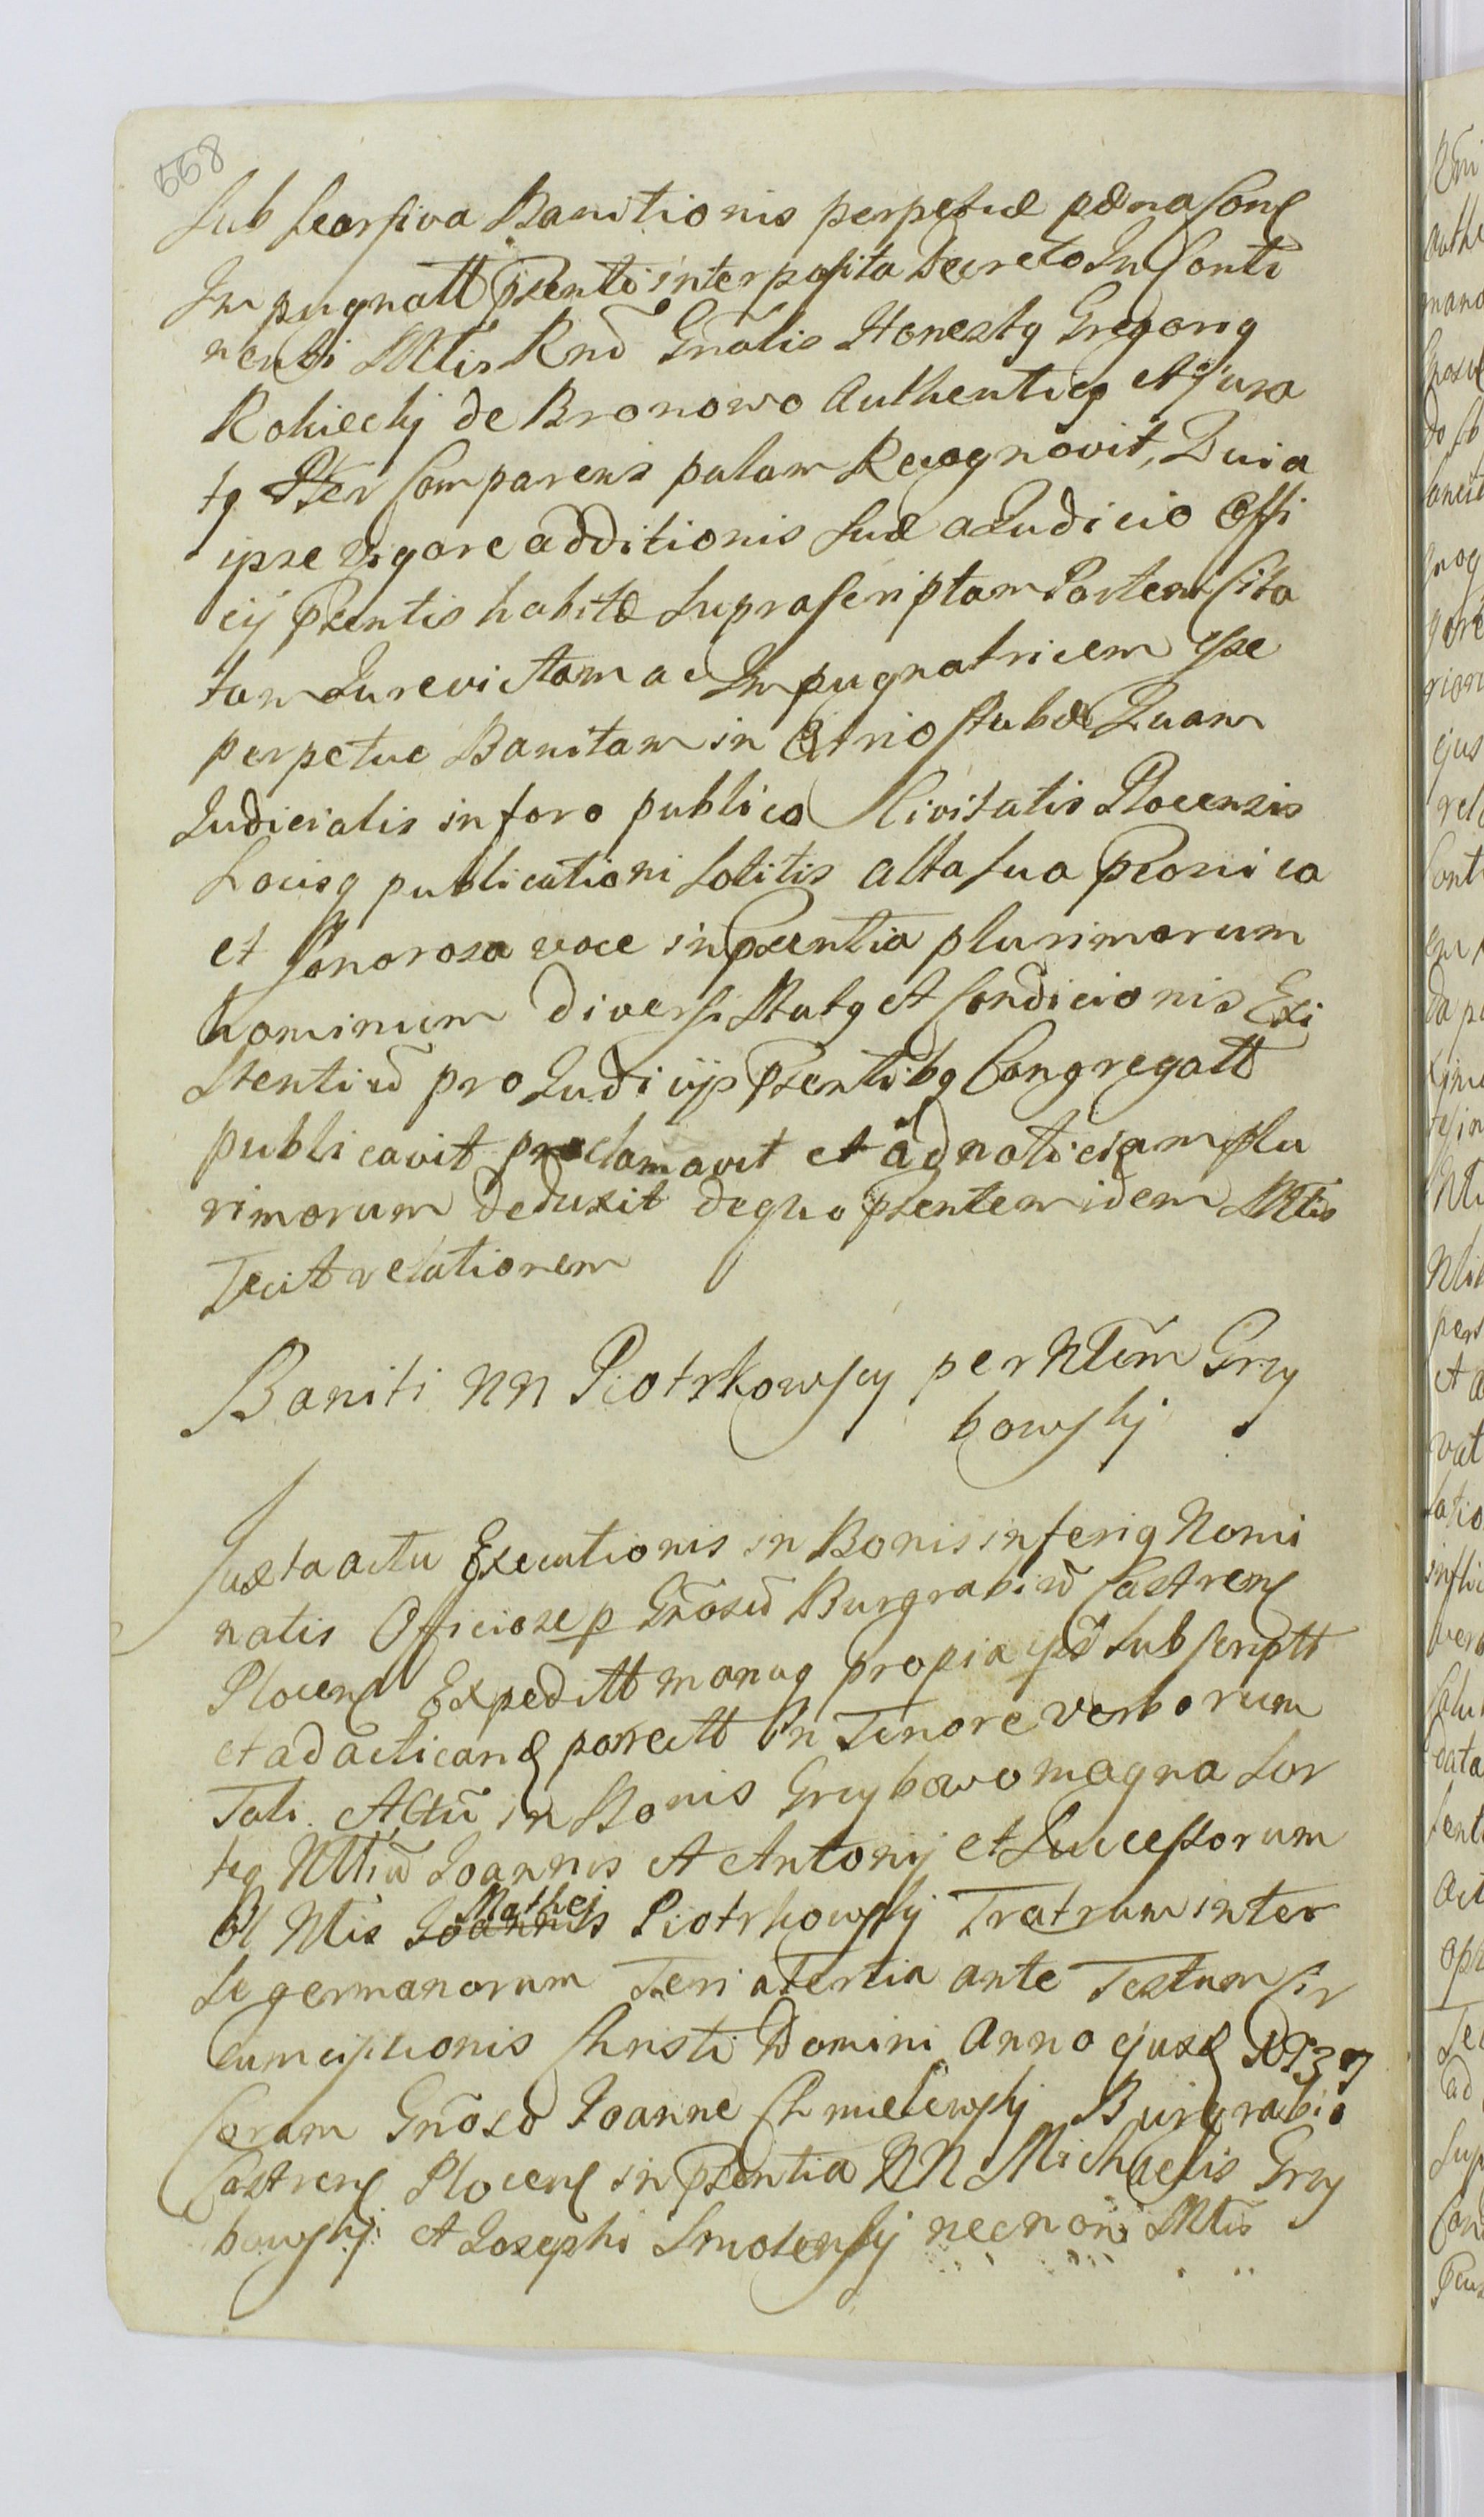 558
Sub Seorsiva Banitionis perpetuæ pæna Conc
Impugnatt Psenti interposita Decreto In Conti
nenti Mtis Rnd Gnalis Honestq Gregoriq
Rokiecki de Bronowo Authenticq et jura
tq Pter Comparens palam Recognovit, Quia
ipse vigore additionis Suæ a Judicio Offi
cij Psentis habitæ Suprascriptam Partem Cita
tam Jurevictam ac Impugnatricem esse
perpetuo Banitam in Atrio Stubæ Quam
Judicialis in foro publico Civitatis Plocensis
Locisq publicationi Solitis alta sua Proni ca
et Sonorosa voce in Psentia plurimorum
hominum diversi Statq et Condicionis Exi
stentiu pro Judicijs Psentibq Congregatt
publicavit proclamavit et ad noticiam plu
rimorum deduxit de quo Psentem idem Mtis
Fecit relationem
Baniti NN Piotrkowscy per NUm Grzy
bowski
Juxta actu Executionis in Bonis inferiq Nomi
natis Officiose p Gnosu Burgrabiu Castrenc
Plocenc Expeditt manuq propia ejsd Subscriptt
et ad acticand porrectt In Tenore verborum
Tali. Actu in Bonis Grzybowo magna Sor
teq NUiu Joannis et Antonij et Successorum
Ol Ntis Joannis Mathei Piotrkowskij Fratrum inter
Se germanorum Feria Tertia ante Festum Cir
cumcisionis Christi Domini Anno ejusd 1737
Coram Gnoso Joanne Chmielewski Burgrabio
Castrenc Plocenc in Psentia NN Michaelis Grzy
bowskij et Josephi Smolenskij necnon Mtis